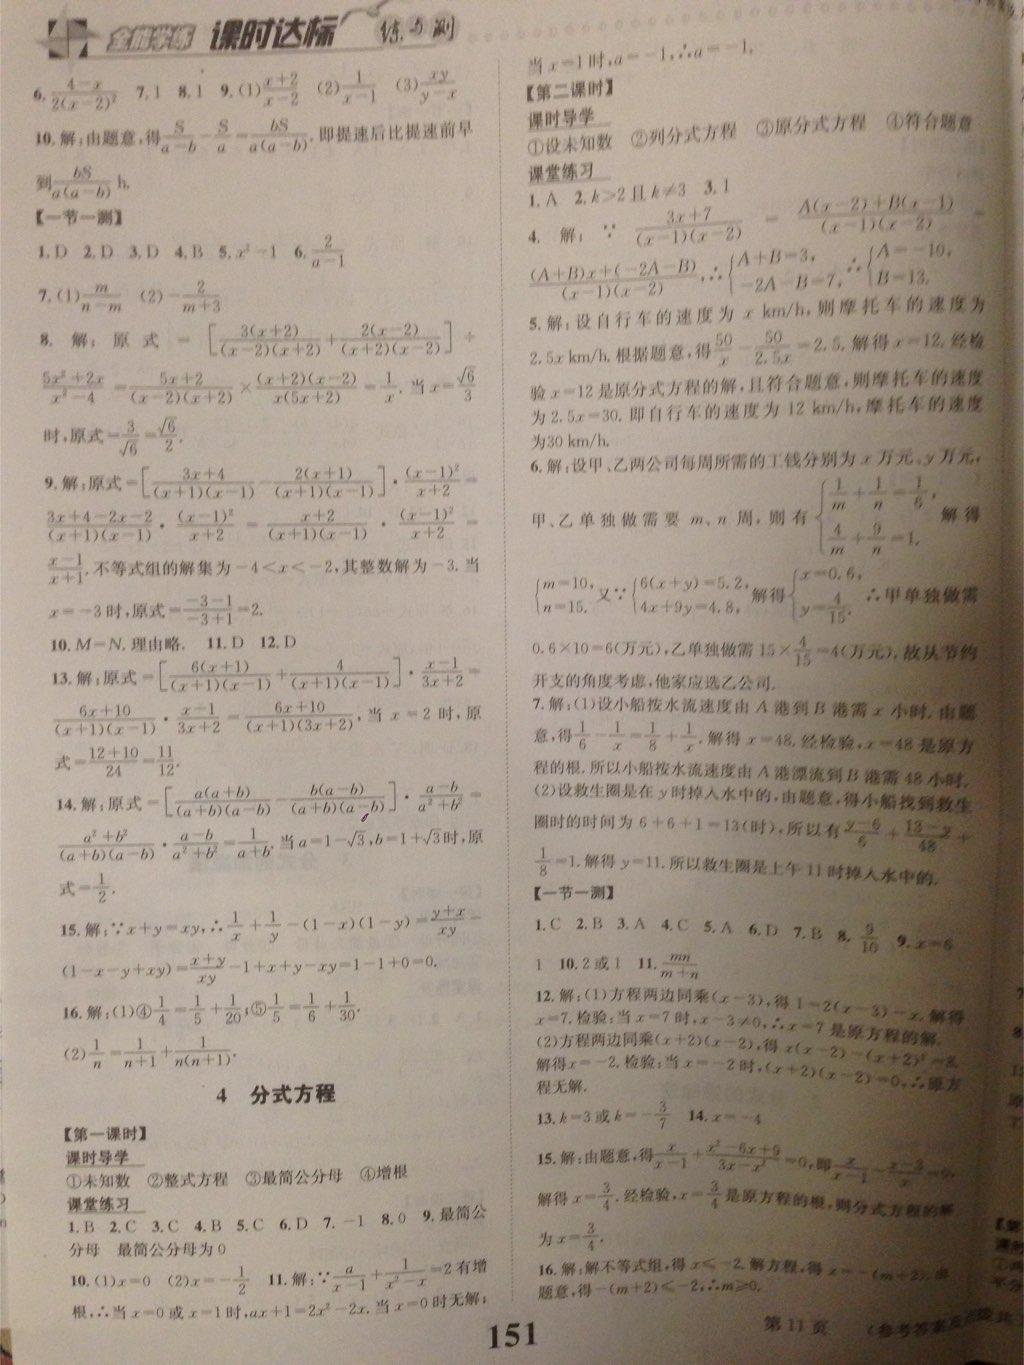 全能学练 课时达标 练与测
6. \frac{4-x}{2(x-2)^2} 7. 1 8. 1 9. (1)\frac{x+2}{x-2} (2)\frac{1}{x-1} (3)\frac{xy}{y-x}
10. 解:由题意,得\frac{S}{a-b}-\frac{S}{a}=\frac{bS}{a(a-b)}. 即提速后比提速前早
到\frac{bS}{a(a-b)} h.
【一节一测】
1. D 2. D 3. D 4. B 5. x²-1 6. \frac{2}{a-1}
7. (1)\frac{m}{n-m} (2)-\frac{2}{m+3}
8. 解: 原式 = [\frac{3(x+2)}{(x-2)(x+2)}+\frac{2(x-2)}{(x+2)(x-2)}] ÷
\frac{5x²+2x}{x²-4}=\frac{5x+2}{(x-2)(x+2)}×\frac{(x+2)(x-2)}{x(5x+2)}=\frac{1}{x}. 当 x=\frac{√6}{3}
时,原式=\frac{3}{√6}=\frac{√6}{2}.
9. 解:原式=[\frac{3x+4}{(x+1)(x-1)}-\frac{2(x+1)}{(x+1)(x-1)}]·\frac{(x-1)²}{x+2}=
\frac{3x+4-2x-2}{(x+1)(x-1)}·\frac{(x-1)²}{x+2}=\frac{x+2}{(x+1)(x-1)}·\frac{(x-1)²}{x+2}=
\frac{x-1}{x+1}. 不等式组的解集为-4<x<-2,其整数解为-3. 当
x=-3时,原式=\frac{-3-1}{-3+1}=2.
10. M=N. 理由略. 11. D 12. D
13. 解:原式=[\frac{6(x+1)}{(x+1)(x-1)}+\frac{4}{(x+1)(x-1)}]·\frac{x-1}{3x+2}=
\frac{6x+10}{(x+1)(x-1)}·\frac{x-1}{3x+2}=\frac{6x+10}{(x+1)(3x+2)}, 当 x=2 时, 原
式=\frac{12+10}{24}=\frac{11}{12}.
14. 解:原式=[\frac{a(a+b)}{(a+b)(a-b)}-\frac{b(a-b)}{(a+b)(a-b)}]·\frac{a-b}{a²+b²}=
\frac{a²+b²}{(a+b)(a-b)}·\frac{a-b}{a²+b²}=\frac{1}{a+b}. 当a=1-√3,b=1+√3时,原
式=\frac{1}{2}.
15. 解:∵x+y=xy,∴\frac{1}{x}+\frac{1}{y}-(1-x)(1-y)=\frac{y+x}{xy}-
(1-x-y+xy)=\frac{x+y}{xy}-1+x+y-xy=1-1+0=0.
16. 解:(1)④\frac{1}{4}=\frac{1}{5}+\frac{1}{20};⑤\frac{1}{5}=\frac{1}{6}+\frac{1}{30}.
(2)\frac{1}{n}=\frac{1}{n+1}+\frac{1}{n(n+1)}.
4 分式方程
【第一课时】
课时导学
①未知数 ②整式方程 ③最简公分母 ④增根
课堂练习
1. B 2. C 3. C 4. B 5. C 6. D 7. -1 8. 0 9. 最简公
分母 最简公分母为0
10. (1)x=0 (2)x=-\frac{1}{2} 11. 解:∵\frac{a}{x-1}+\frac{1}{x²-x}=2有增
根,∴当x=0或x=1时,ax+1=2x²-2x. 当x=0时无解;
当x=1时,a=-1,∴a=-1.
【第二课时】
课时导学
①设未知数 ②列分式方程 ③原分式方程 ④符合题意
课堂练习
1. A 2. k>2且k≠3 3. 1
4. 解: ∵ \frac{3x+7}{(x-1)(x-2)} = \frac{A(x-2)+B(x-1)}{(x-1)(x-2)} =
\frac{(A+B)x+(-2A-B)}{(x-1)(x-2)},∴{A+B=3, -2A-B=7,∴{A=-10, B=13.
5. 解:设自行车的速度为 x km/h,则摩托车的速度为
2.5x km/h. 根据题意,得\frac{50}{x}-\frac{50}{2.5x}=2.5. 解得x=12. 经检
验x=12是原分式方程的解,且符合题意,则摩托车的速度
为2.5x=30. 即自行车的速度为 12 km/h,摩托车的速度
为30 km/h.
6. 解:设甲、乙两公司每周所需的工钱分别为x万元、y万元,
甲、乙单独做需要 m、n 周, 则有 {\frac{1}{m}+\frac{1}{n}=\frac{1}{6}, \frac{4}{m}+\frac{9}{n}=1. 解得
{m=10, n=15. 又∵{6(x+y)=5.2, 4x+9y=4.8, 解得{x=0.6, y=\frac{4}{15}. ∴甲单独做需
0.6×10=6(万元),乙单独做需15×\frac{4}{15}=4(万元). 故从节约
开支的角度考虑,他家应选乙公司.
7. 解:(1)设小船按水流速度由A港到B港需x小时. 由题
意,得\frac{1}{6}-\frac{1}{x}=\frac{1}{8}+\frac{1}{x}. 解得x=48. 经检验,x=48是原方
程的根. 所以小船按水流速度由A港漂流到B港需48小时.
(2)设救生圈是在y时掉入水中的,由题意,得小船找到救生
圈时的时间为6+6+1=13(时),所以有\frac{y-6}{6}+\frac{13-y}{48}+
\frac{1}{8}=1. 解得y=11. 所以救生圈是上午11时掉入水中的.
【一节一测】
1. C 2. B 3. A 4. C 5. A 6. D 7. B 8. \frac{9}{10} 9. x=6
1 10. 2或1 11. \frac{mn}{m+n}
12. 解:(1)方程两边同乘(x-3),得1=2(x-3)-x. 解得
x=7. 检验:当x=7时,x-3≠0,∴x=7是原方程的解.
(2)方程两边同乘(x+2)(x-2),得x(x-2)-(x+2)²=8.
解得x=-2. 检验:当x=-2时,(x+2)(x-2)=0,∴原方
程无解.
13. k=3或k=-\frac{3}{7} 14. x=-4
15. 解:由题意,得\frac{x}{x-1}+\frac{x²-6x+9}{3x-x²}=0,即\frac{x}{x-1}-\frac{x-3}{x}=0.
解得x=\frac{3}{4}. 经检验,x=\frac{3}{4}是原方程的根,则分式方程的解
为x=\frac{3}{4}.
16. 解:解不等式组,得x≤-2. 解方程,得x=-(m+2). 由
题意,得-(m+2)≤-2,∴m≥0.
151
第11页
(参考答案